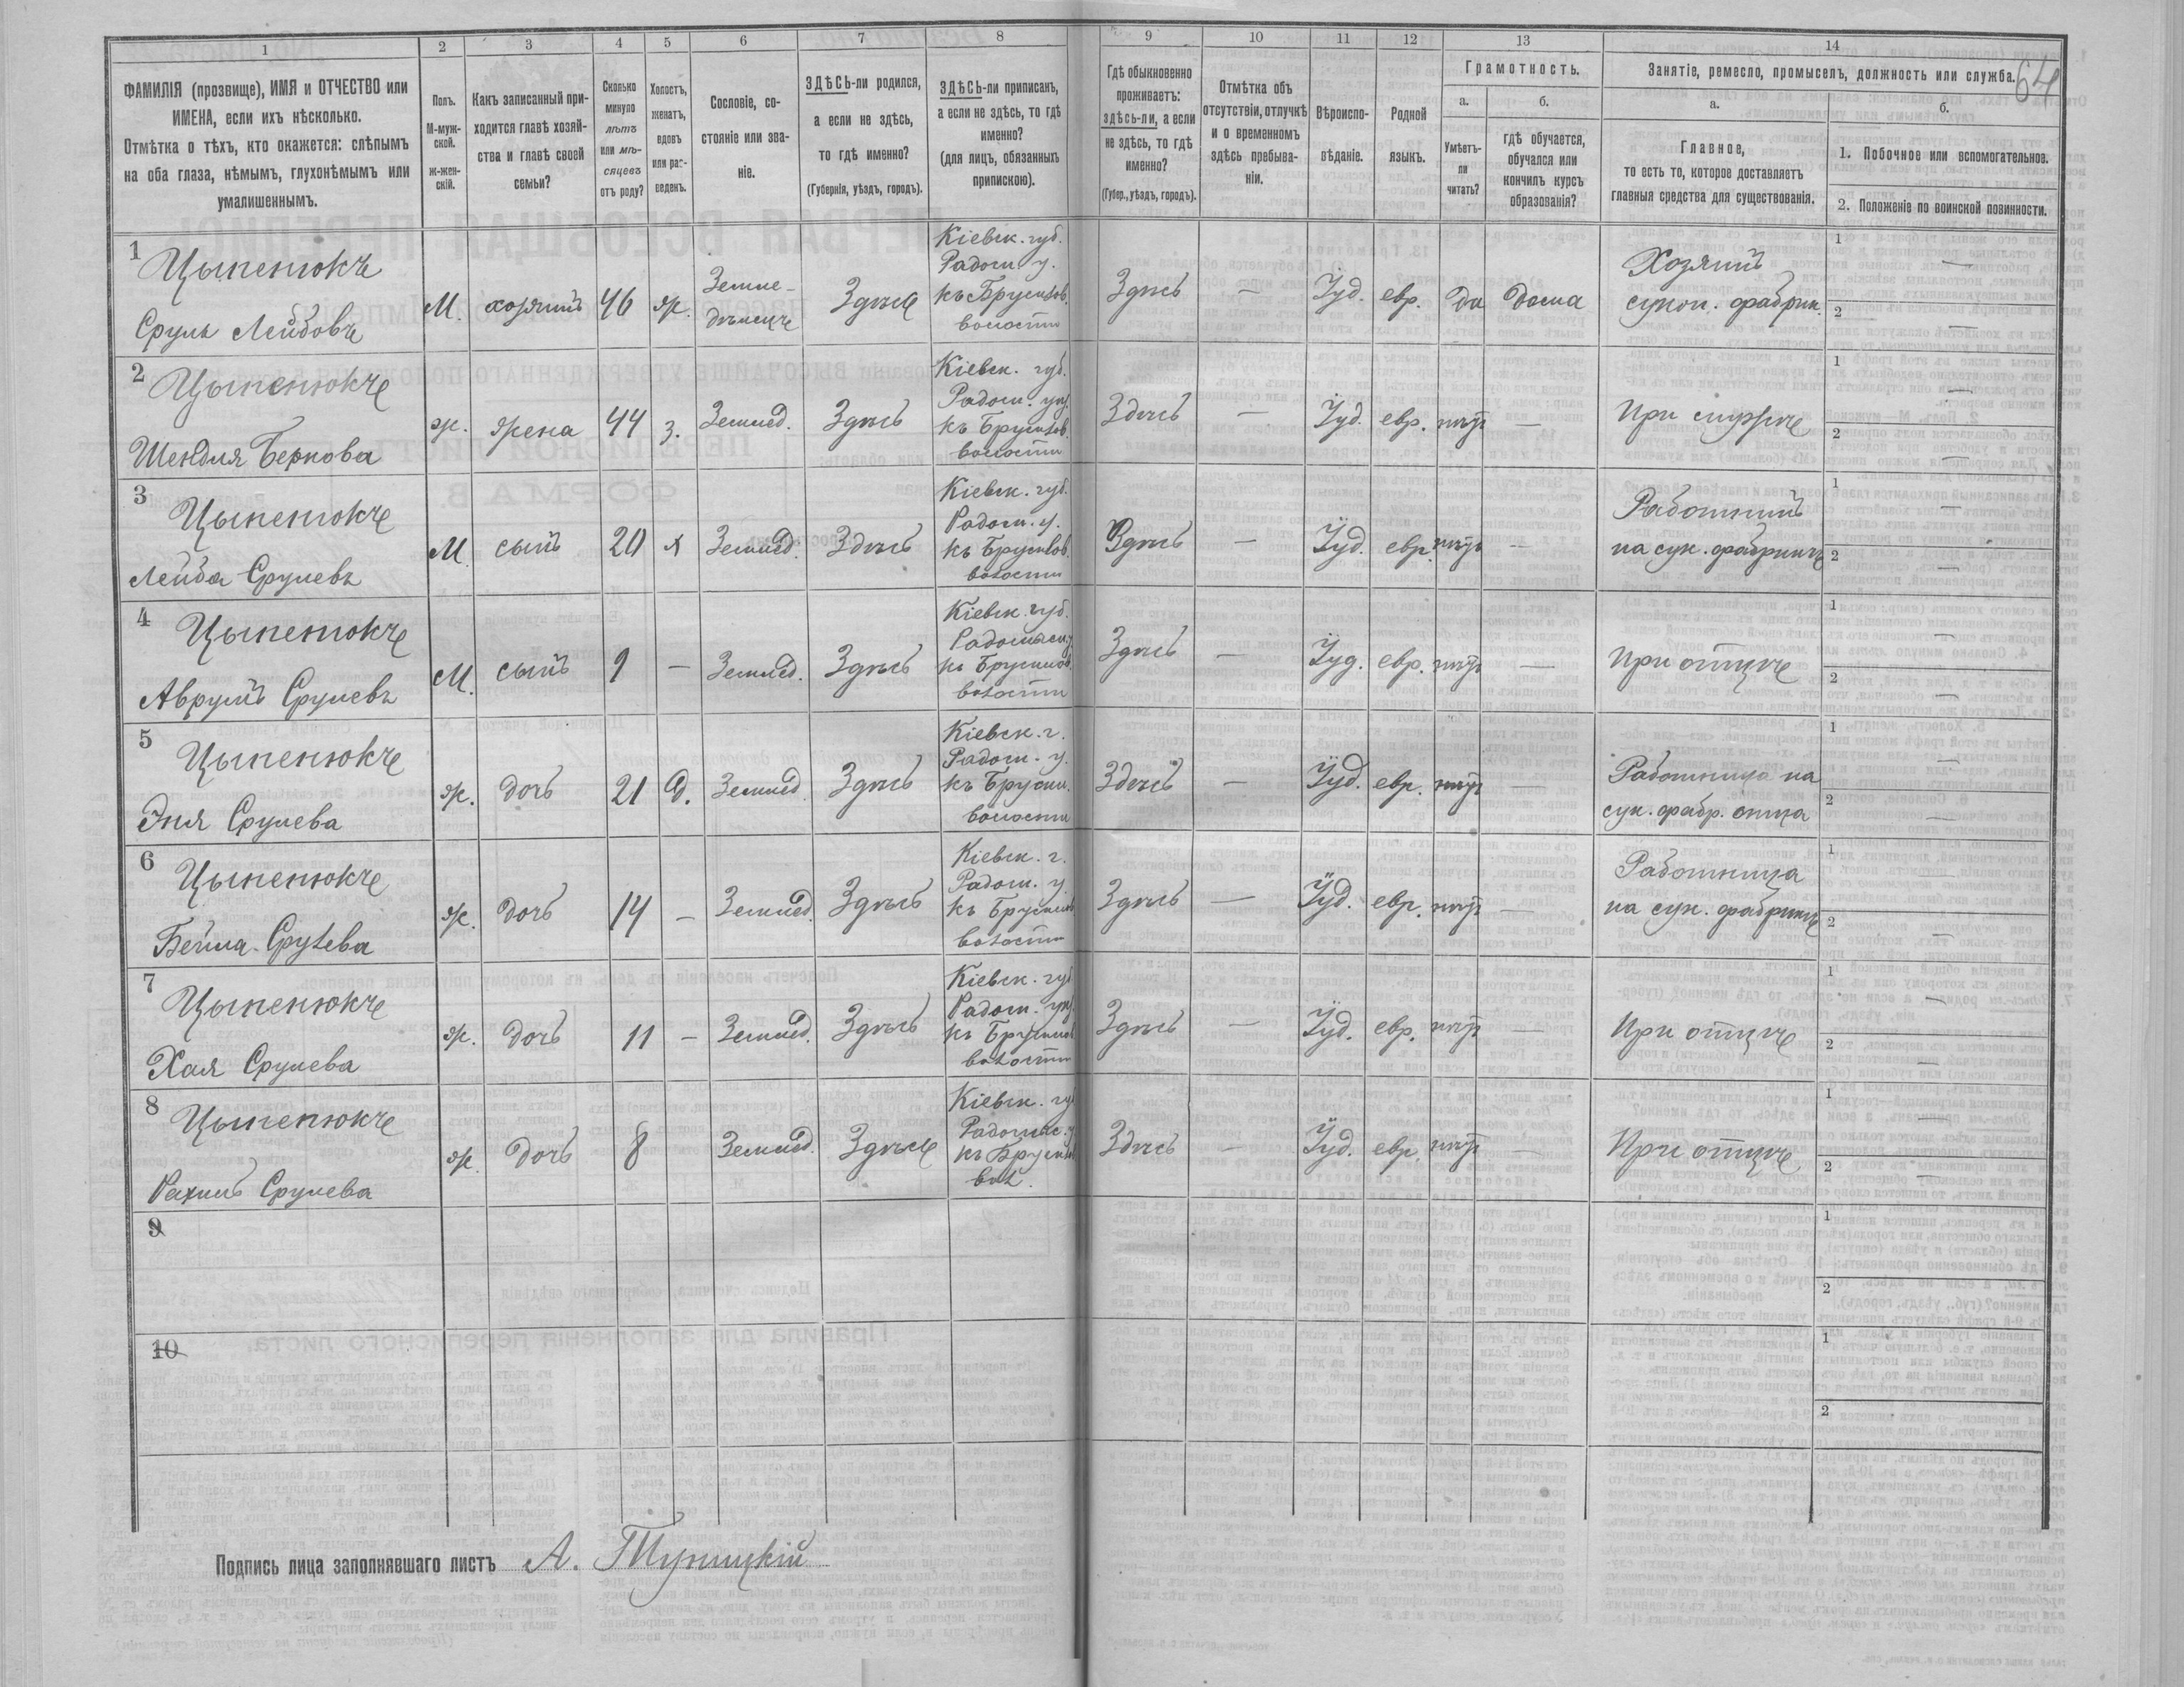 1 2 3 4 5 6 7 8 9 10 11 12 13 14
64
ФАМИЛІЯ (прозвище), ИМЯ и ОТЧЕСТВО или
ИМЕНА, если ихъ нѣсколько.
Отмѣтка о тѣхъ, кто окажется: слѣпымъ
на оба глаза, нѣмымъ, глухонѣмымъ или
умалишеннымъ.
Полъ.
М-муж-
ской.
ж-жен-
скій.
Какъ записанный при-
ходится главѣ хозяй-
ства и главѣ своей
семьи?
Сколько
минуло
лѣтъ
или мѣ-
сяцевъ
отъ роду?
Холостъ,
женатъ,
вдовъ
или раз-
веденъ.
Сословіе, со-
стояніе или зва-
ніе.
ЗДѢСЬ-ли родился,
а если не здѣсь,
то гдѣ именно?
(Губернія, уѣздъ, городъ).
ЗДѢСЬ-ли приписанъ,
а если не здѣсь, то гдѣ
именно?
(для лицъ, обязанныхъ
припискою).
Гдѣ обыкновенно
проживаетъ:
здѣсь-ли, а если
не здѣсь, то гдѣ
именно?
(Губер., уѣздъ, городъ).
Отмѣтка объ
отсутствіи, отлучкѣ
и о временномъ
здѣсь пребыва-
ніи.
Вѣроиспо-
вѣданіе.
Родной
языкъ.
Грамотность.
а.
Умѣетъ-
ли
читать?
б.
гдѣ обучается,
обучался или
кончилъ курсъ
образованія?
Занятіе, ремесло, промыселъ, должность или служба.
а.
Главное,
то есть то, которое доставляетъ
главныя средства для существованія.
б.
1. Побочное или вспомогательное.
2. Положеніе по воинской повинности.
1
Цыпенюкъ
Сруль Лейбовъ
М. хозяинъ 46 ж.
Земле-
дѣлецъ
Здѣсь
Кіевск. губ.
Радом. у.
къ Брусилов.
волости
Здѣсь — Іуд. евр. Да Дома
Хозяинъ
сукон. фабрик.
1 —
2 —
2
Цыпенюкъ
Шендля Беркова
ж. жена 44 з. Землед. Здѣсь
Кіевск. губ.
Радом. уѣз.
къ Брусилов.
волости
Здѣсь — Іуд. евр. нѣтъ —
При мужѣ
1 —
2 —
3
Цыпенюкъ
Лейба Срулевъ
М. сынъ 20 х Землед. Здѣсь
Кіевск. губ.
Радом. у.
къ Брусилов.
волости
Здѣсь — Іуд. евр. нѣтъ —
Работникъ
на сук. фабрикѣ
1 —
2 —
4
Цыпенюкъ
Аврумъ Срулевъ
М. сынъ 9 — Землед. Здѣсь
Кіевск. губ.
Радомыс. у.
къ Брусилов.
волости
Здѣсь — Іуд. евр. нѣтъ —
При отцѣ
1 —
2 —
5
Цыпенюкъ
Эня Срулева
ж. дочь 21 д. Землед. Здѣсь
Кіевск. г.
Радом. у.
къ Брусил.
волости
Здѣсь — Іуд. евр. нѣтъ —
Работница на
сук. фабр. отца
1 —
2 —
6
Цыпенюкъ
Бейла Срулева
ж. дочь 14 — Землед. Здѣсь
Кіевск. г.
Радом. у.
къ Брусилов
волости
Здѣсь — Іуд. евр. нѣтъ —
Работница
на сук. фабрикѣ
1 —
2 —
7
Цыпенюкъ
Хая Срулева
ж. дочь 11 — Землед. Здѣсь
Кіевск. губ
Радом. уѣз
къ Брусилов
волости
Здѣсь — Іуд. евр. нѣтъ —
При отцѣ
1 —
2 —
8
Цыпенюкъ
Рахиль Срулева
ж. дочь 8 Землед. Здѣсь
Кіевск. губ
Радомыс. у
къ Брусил
вол.
Здѣсь — Іуд. евр. нѣтъ —
При отцѣ
1 —
2 —
9
1
2
10
1
2
Подпись лица заполнявшаго листъ А. Туницкій